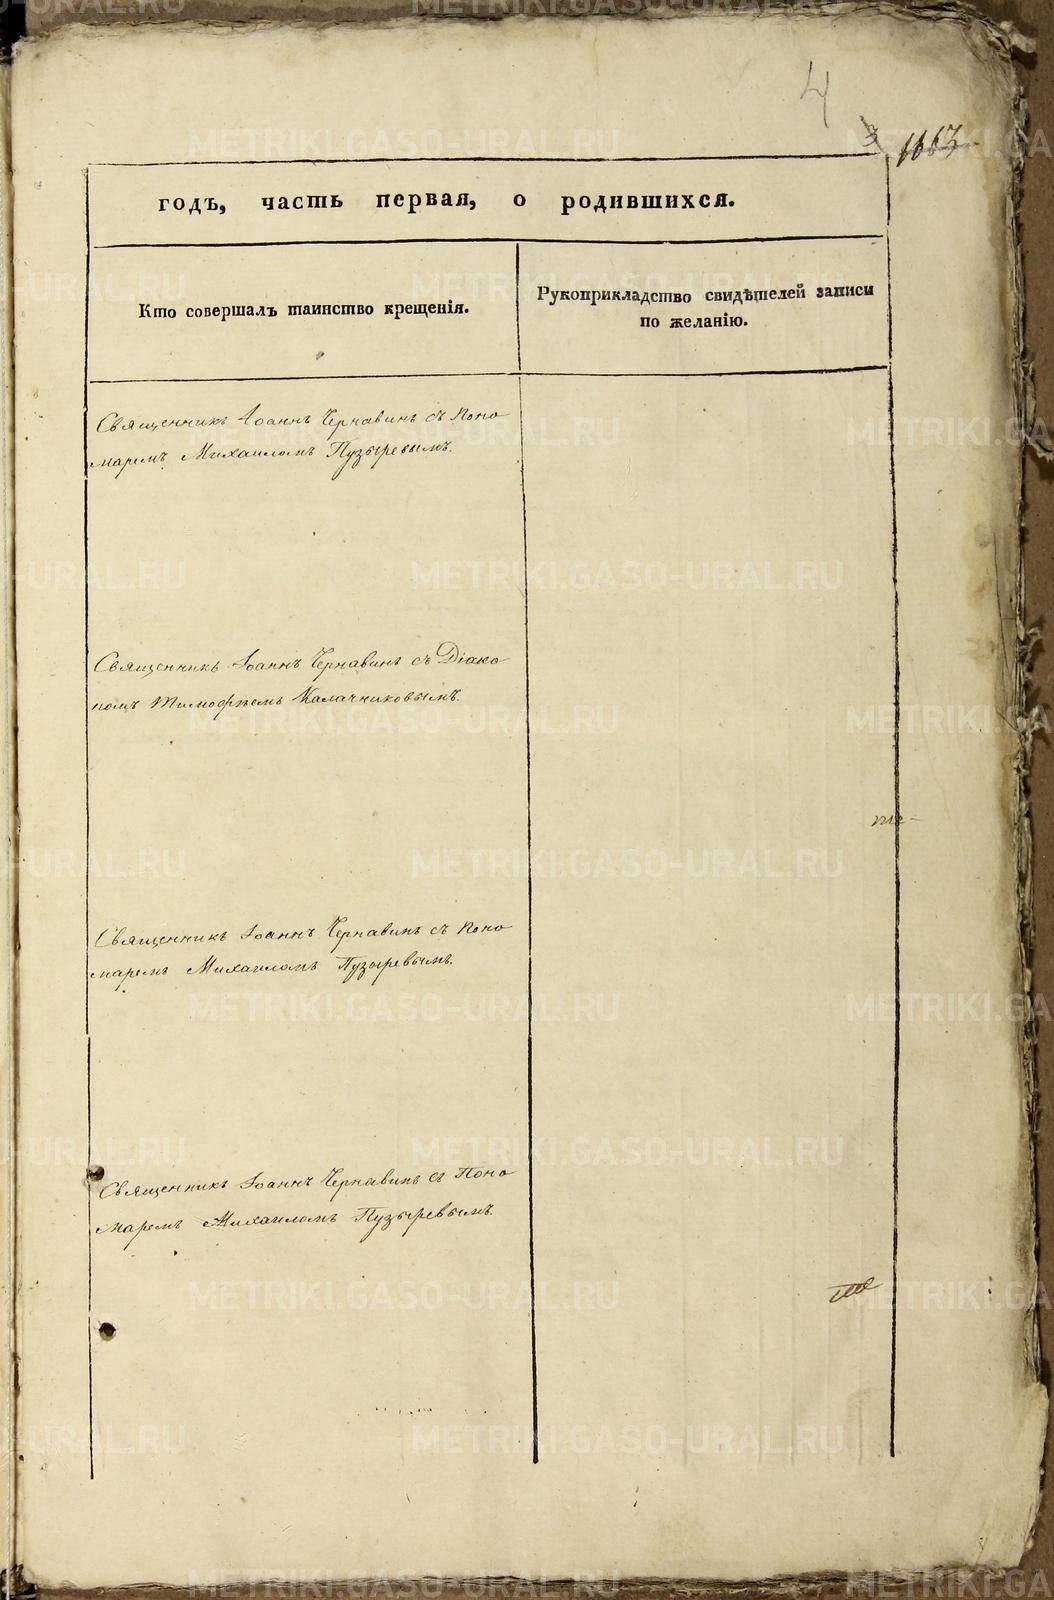 4
3 1663
годъ, часть первая, о родившихся.
Кто совершалъ таинство крещенія.
Рукоприкладство свидѣтелей записи
по желанію.
Священникъ Іоаннъ Чернавинъ съ Поно
маремъ Михаиломъ Пузыревымъ.
Священникъ Іоаннъ Чернавинъ съ Діако
номъ Тимофѣемъ Калачниковымъ.
Священникъ Іоаннъ Чернавинъ съ Поно
маремъ Михаиломъ Пузыревымъ.
Священникъ Іоаннъ Чернавинъ съ Поно
маремъ Михаиломъ Пузыревымъ.
METRIKI.GASO-URAL.RU